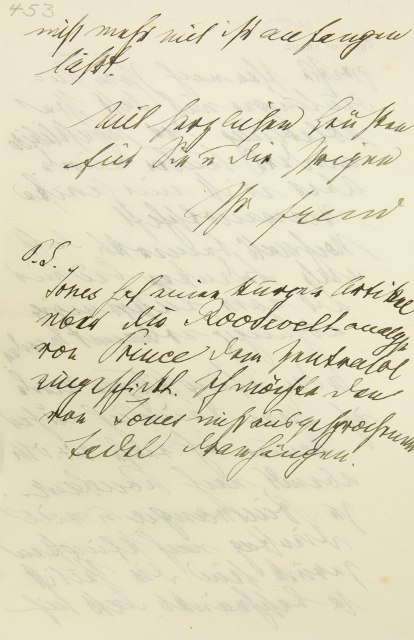 453
nicht mehr viel ist anfangen
läßt.
Mit herzlichen Grüßen
für Sie u die Ihrigen
Ihr Freud
P.S.
Jones hat einen kurzen Artikel
über die Roosevelt-analyse
von Prince dem Zentralbl
zugeschickt. Ich möchte den
von Jones nicht ausgesprochenen
Tadel dranhängen.